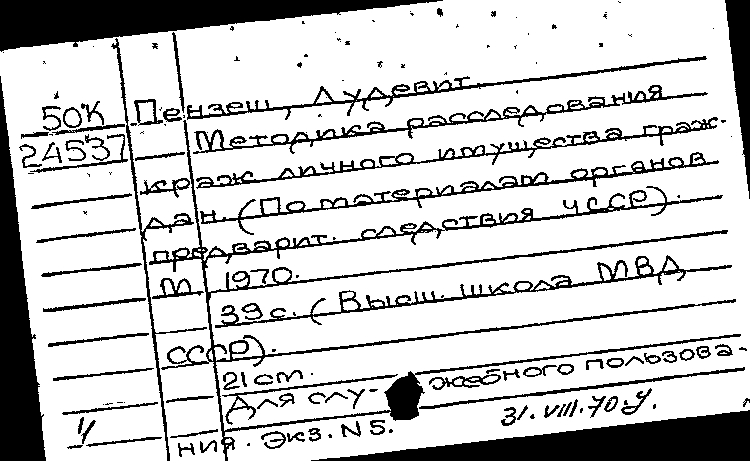 50к Пензеш, Лудевит.
24537 Методика расследования
краж личного имущества граж-
дан. (По материалам органов
предварит. следствия ЧССР).
М 1970.
39 с. (Высш. школа МВД
СССР).
21 см.
Для слу- жебного пользова-
ния. Экз. N 5. 31.VIII.70 у.